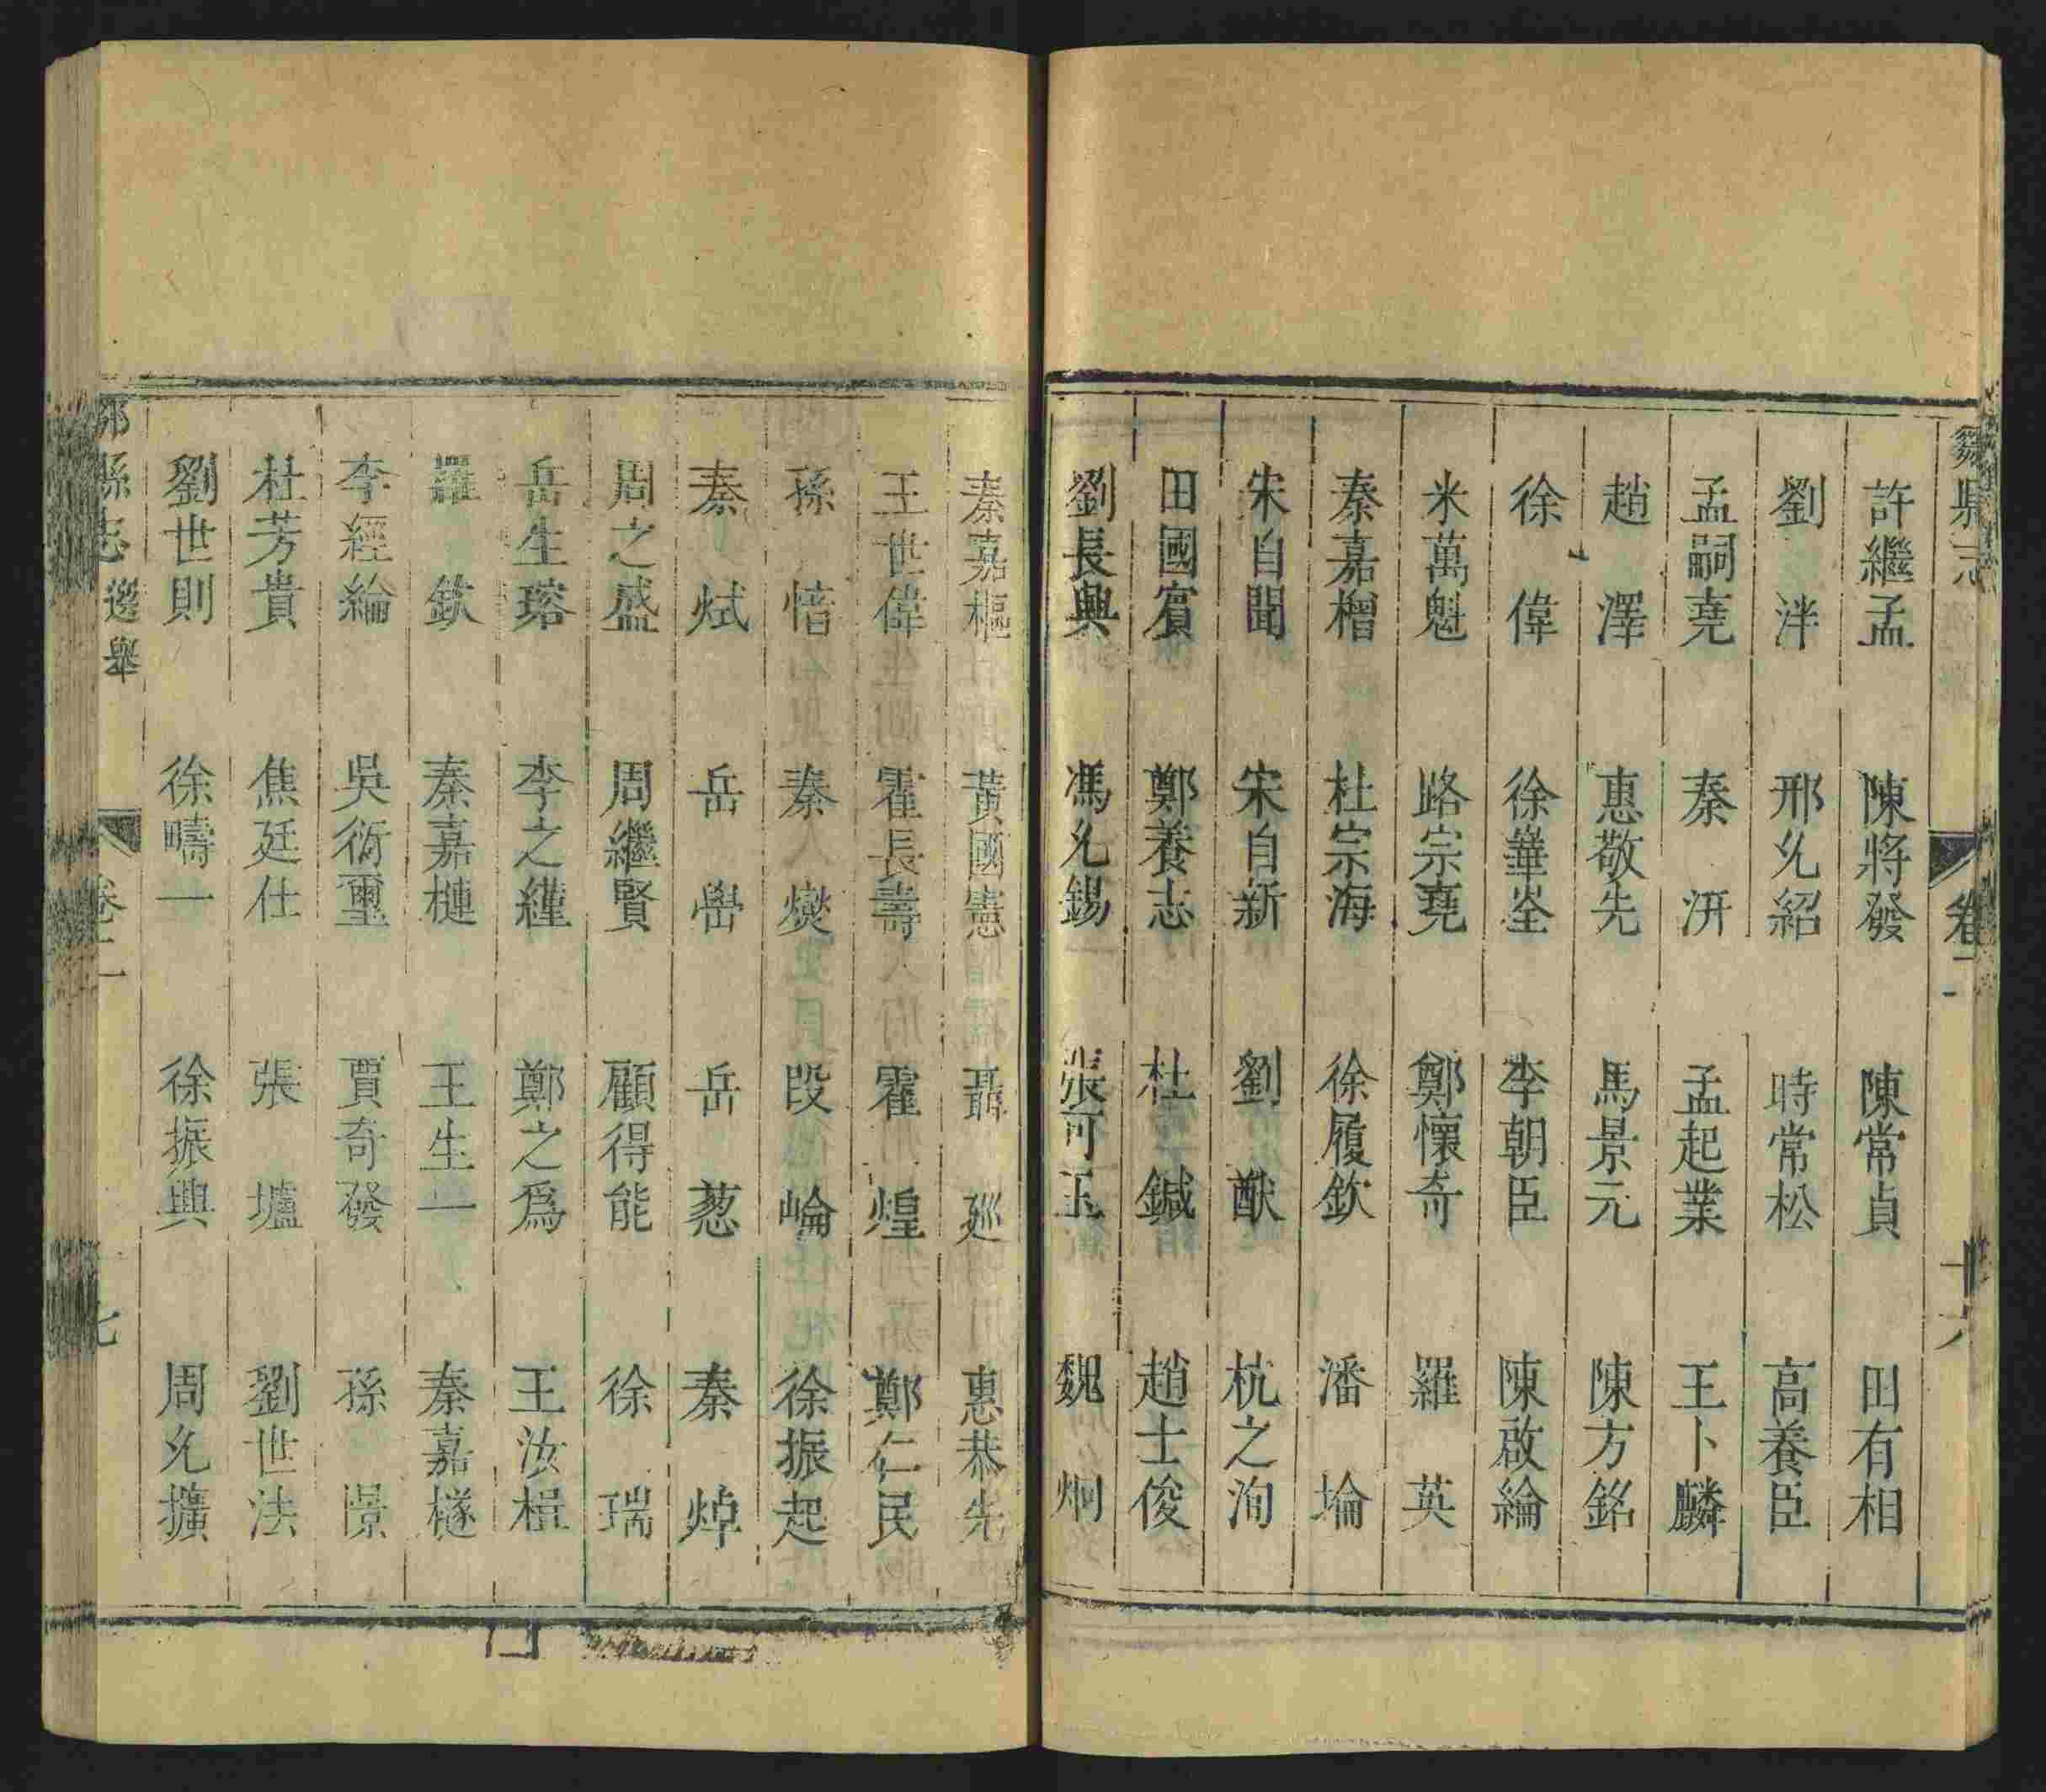 鄒縣志 卷二 十六
許繼孟 陳將發 陳常貞 田有相
劉泮 邢允紹 時常松 高養臣
孟嗣堯 秦汧 孟起業 王卜麟
趙澤 惠敬先 馬景元 陳方銘
徐偉 徐崋峑 李朝臣 陳啟綸
米萬魁 路宗堯 鄭懷奇 羅英
秦嘉橧 杜宗海 徐履欽 潘埨
宋自聞 宋自新 劉猷 杭之洵
田國賓 鄭養志 杜鍼 趙士俊
劉長興 馮允錫 張可玉 魏炯
秦嘉樞 黃國憲 聶廵 惠恭先
王世偉 霍長壽 霍煌 鄭仁民
孫愔 秦燠 段崘 徐振起
秦烒 岳嶨 岳蔥 秦焯
周之盛 周繼賢 顧得能 徐瑞
岳生瑢 李之繩 鄭之爲 王汝楫
羅欽 秦嘉槤 王生一 秦嘉檖
李經綸 吳衍璽 賈奇發 孫憬
杜芳貴 焦廷仕 張壚 劉世法
劉世則 徐疇一 徐振興 周允擴
鄒縣志 選舉 卷二 七